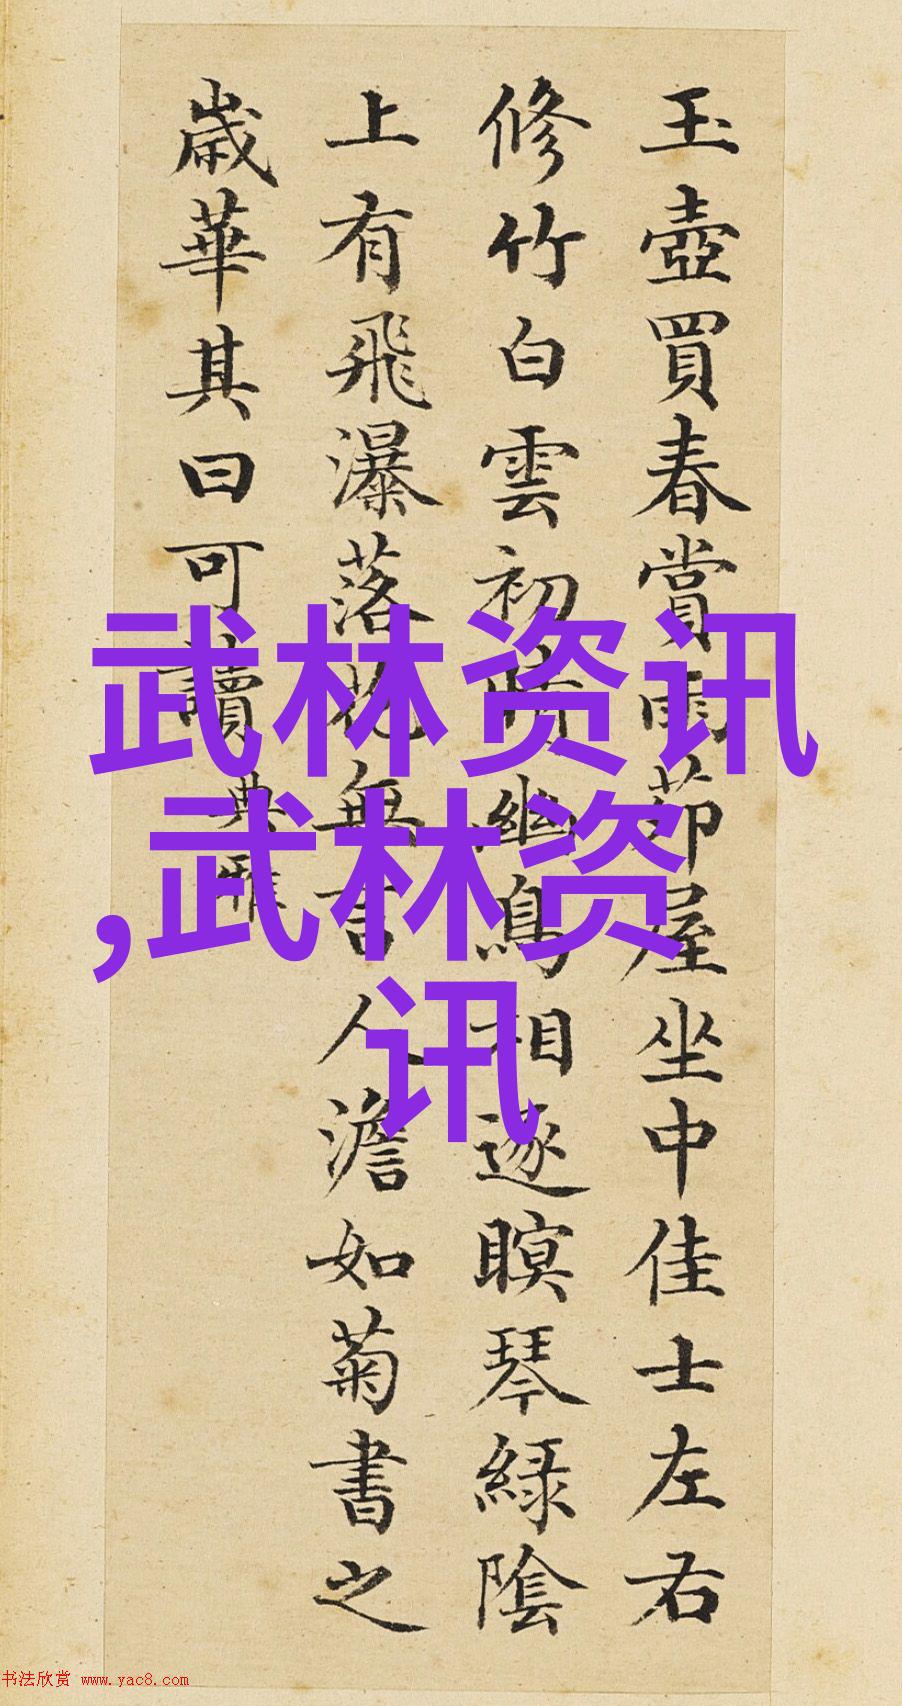 玉壺買春賞雨茆屋坐中佳士左右
修竹白雲初晴幽鳥相逐瞑琴綠陰
上有飛瀑落花無言人澹如菊書之
歲華其曰可讀 典雅
武林资讯
,武林资
讯
书法欣赏 www.yac8.com